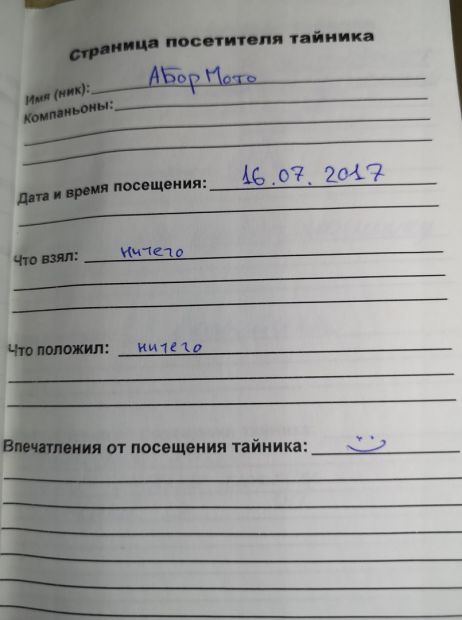 Страница посетителя тайника
Имя (ник): АБорМото
Компаньоны:
Дата и время посещения: 16.07.2017
Что взял: ничего
Что положил: ничего
Впечатления от посещения тайника: